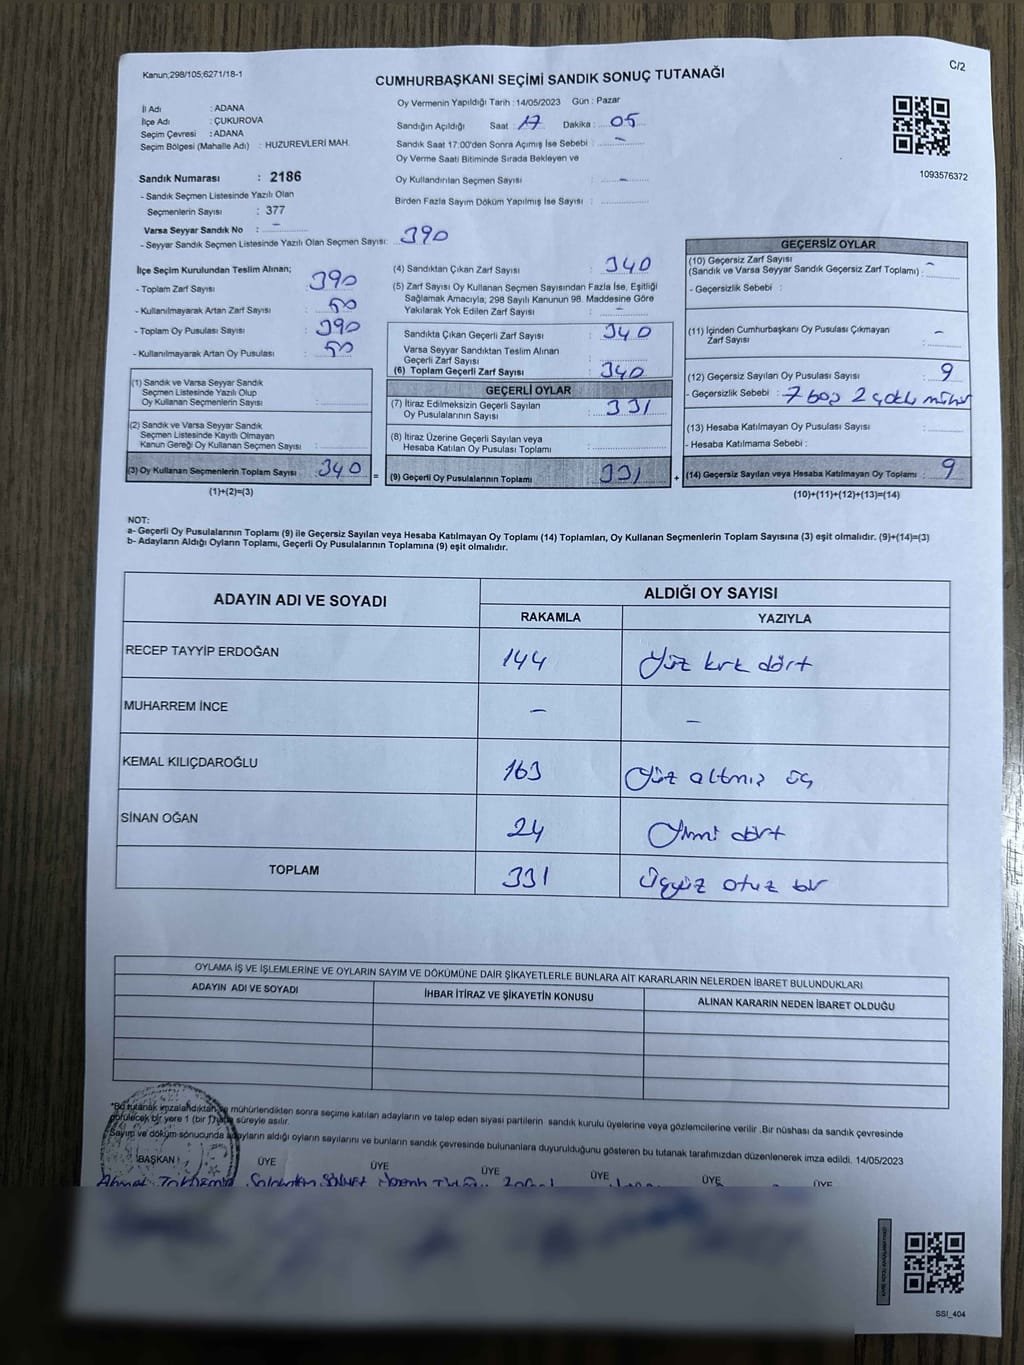 Kanun;298/105;6271/18-1
C/2
CUMHURBAŞKANI SEÇİMİ SANDIK SONUÇ TUTANAĞI
İl Adı : ADANA
İlçe Adı : ÇUKUROVA
Seçim Çevresi : ADANA
Seçim Bölgesi (Mahalle Adı) : HUZUREVLERİ MAH.
Sandık Numarası : 2186
- Sandık Seçmen Listesinde Yazılı Olan
Seçmenlerin Sayısı : 377
Varsa Seyyar Sandık No : -
- Seyyar Sandık Seçmen Listesinde Yazılı Olan Seçmen Sayısı: 390
Oy Vermenin Yapıldığı Tarih : 14/05/2023 Gün : Pazar
Sandığın Açıldığı Saat : 17 Dakika : 05
Sandık Saat 17:00'den Sonra Açımış İse Sebebi : -
Oy Verme Saati Bitiminde Sırada Bekleyen ve
Oy Kullandırılan Seçmen Sayısı : -
Birden Fazla Sayım Döküm Yapılmış İse Sayısı :
1093576372
İlçe Seçim Kurulundan Teslim Alınan;
- Toplam Zarf Sayısı : 390
- Kullanılmayarak Artan Zarf Sayısı : 50
- Toplam Oy Pusulası Sayısı : 390
- Kullanılmayarak Artan Oy Pusulası : 50
(1) Sandık ve Varsa Seyyar Sandık
Seçmen Listesinde Yazılı Olup
Oy Kullanan Seçmenlerin Sayısı :
(2) Sandık ve Varsa Seyyar Sandık
Seçmen Listesinde Kayıtlı Olmayan
Kanun Gereği Oy Kullanan Seçmen Sayısı :
(3) Oy Kullanan Seçmenlerin Toplam Sayısı : 340
(1)+(2)=(3)
(4) Sandıktan Çıkan Zarf Sayısı : 340
(5) Zarf Sayısı Oy Kullanan Seçmen Sayısından Fazla İse, Eşitliği
Sağlamak Amacıyla; 298 Sayılı Kanunun 98. Maddesine Göre
Yakılarak Yok Edilen Zarf Sayısı : -
Sandıkta Çıkan Geçerli Zarf Sayısı : 340
Varsa Seyyar Sandıktan Teslim Alınan
Geçerli Zarf Sayısı :
(6) Toplam Geçerli Zarf Sayısı : 340
GEÇERLİ OYLAR
(7) İtiraz Edilmeksizin Geçerli Sayılan
Oy Pusulalarının Sayısı : 331
(8) İtiraz Üzerine Geçerli Sayılan veya
Hesaba Katılan Oy Pusulası Toplamı :
= (9) Geçerli Oy Pusulalarının Toplamı 331
GEÇERSİZ OYLAR
(10) Geçersiz Zarf Sayısı : -
(Sandık ve Varsa Seyyar Sandık Geçersiz Zarf Toplamı) :
- Geçersizlik Sebebi :
(11) İçinden Cumhurbaşkanı Oy Pusulası Çıkmayan
Zarf Sayısı : -
(12) Geçersiz Sayılan Oy Pusulası Sayısı : 9
- Geçersizlik Sebebi : 7 boş 2 çoklu mühür
(13) Hesaba Katılmayan Oy Pusulası Sayısı :
- Hesaba Katılmama Sebebi :
+ (14) Geçersiz Sayılan veya Hesaba Katılmayan Oy Toplamı : 9
(10)+(11)+(12)+(13)=(14)
NOT:
a- Geçerli Oy Pusulalarının Toplamı (9) ile Geçersiz Sayılan veya Hesaba Katılmayan Oy Toplamı (14) Toplamları, Oy Kullanan Seçmenlerin Toplam Sayısına (3) eşit olmalıdır. (9)+(14)=(3)
b- Adayların Aldığı Oyların Toplamı, Geçerli Oy Pusulalarının Toplamına (9) eşit olmalıdır.
ADAYIN ADI VE SOYADI ALDIĞI OY SAYISI
RAKAMLA YAZIYLA
RECEP TAYYİP ERDOĞAN 144 Yüz kırk dört
MUHARREM İNCE - -
KEMAL KILIÇDAROĞLU 163 Yüz altmış üç
SİNAN OĞAN 24 Yirmi dört
TOPLAM 331 Üçyüz otuz bir
OYLAMA İŞ VE İŞLEMLERİNE VE OYLARIN SAYIM VE DÖKÜMÜNE DAİR ŞİKAYETLERLE BUNLARA AİT KARARLARIN NELERDEN İBARET BULUNDUKLARI
ADAYIN ADI VE SOYADI İHBAR İTİRAZ VE ŞİKAYETİN KONUSU ALINAN KARARIN NEDEN İBARET OLDUĞU
*Bu tutanak imzalandıktan ve mühürlendikten sonra seçime katılan adayların ve talep eden siyasi partilerin sandık kurulu üyelerine veya gözlemcilerine verilir .Bir nüshası da sandık çevresinde
görülecek bir yere 1 (bir) hafta süreyle asılır.
Sayım ve döküm sonucunda adayların aldığı oyların sayılarını ve bunların sandık çevresinde bulunanlara duyurulduğunu gösteren bu tutanak tarafımızdan düzenlenerek imza edildi. 14/05/2023
BAŞKAN ÜYE ÜYE ÜYE ÜYE ÜYE ÜYE
Ahmet
SSI_404